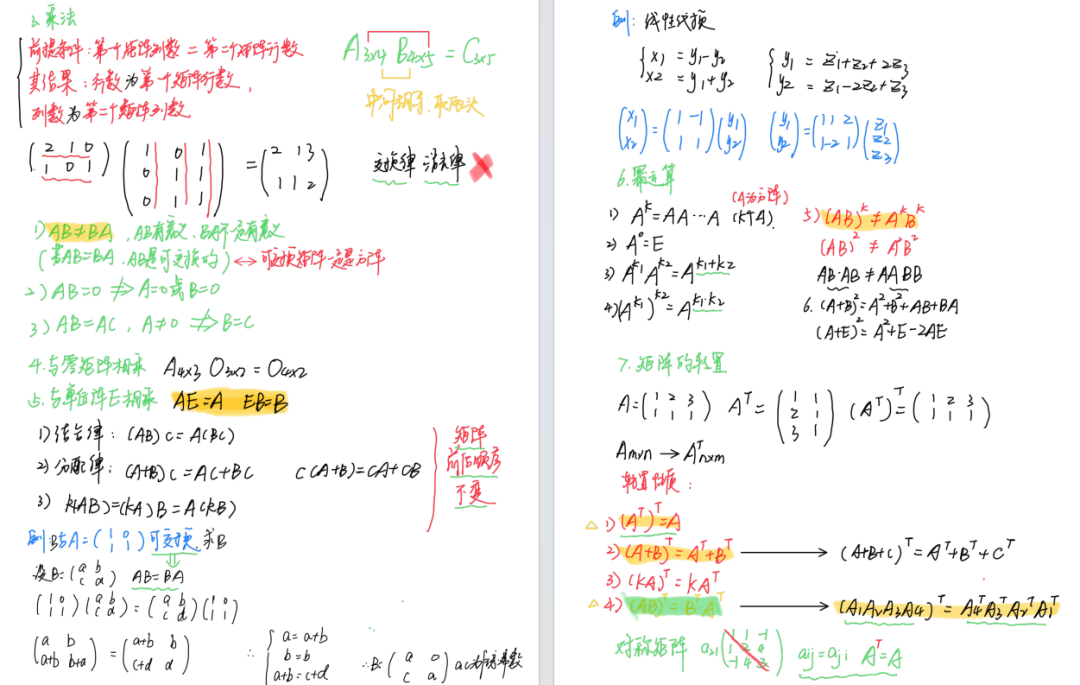 3.乘法
前提条件：第一个矩阵列数 = 第二个矩阵行数
其结果：行数为第一个矩阵行数，
列数为第二个矩阵列数
A3x4 B4x5 = C3x5
中间相等，取两头
(2 1 0
1 0 1) (1 0 1
0 1 1
0 1 1) = (2 1 3
1 1 2)
交换律 消去律 ✗
1) AB≠BA，AB有意义，BA不一定有意义
(若AB=BA，AB是可交换的) ↔ 可交换矩阵一定是方阵
2) AB=0 ⇏ A=0或B=0
3) AB=AC，A≠0 ⇏ B=C
4.与零矩阵相乘 A4x3 O3x2 = O4x2
5.与单位阵E相乘 AE=A EB=B
1)结合律：(AB)C=A(BC)
2)分配律：(A+B)C=AC+BC C(A+B)=CA+CB
3) k(AB)=(kA)B=A(kB)
矩阵
前后顺序
不变
例:B与A=(1 0
1 1)可交换，求B
设B=(a b
c d) AB=BA
(1 0
1 1)(a b
c d)=(a b
c d)(1 0
1 1)
(a b
a+b b+d)=(a+b b
c+d d)
∴ {a=a+b
b=b
a+b=c+d
∴B=(a 0
c a) ac为任意常数
例：线性代换
{x1 = y1-y2
x2 = y1+y2
{y1 = z1+z2+2z3
y2 = z1-2z2+z3
(x1
x2)=(1 -1
1 1)(y1
y2)
(y1
y2)=(1 1 2
1 -2 1)(z1
z2
z3)
6.幂运算
1) A^k=AA…A (k个A) (A为方阵)
2) A^0=E
3) A^k1 A^k2=A^k1+k2
4)(A^k1)^k2=A^k1·k2
5) (AB)^k ≠ A^k B^k
(AB)^2 ≠ A^2B^2
AB·AB ≠ AABB
6. (A+B)^2=A^2+B^2+AB+BA
(A+E)^2=A^2+E-2AE
7.矩阵的转置
A=(1 2 3
1 1 1) A^T=(1 1
2 1
3 1) (A^T)^T=(1 2 3
1 1 1)
Amxn → A^Tnxm
转置性质：
△ 1) (A^T)^T=A
2) (A+B)^T=A^T+B^T → (A+B+C)^T=A^T+B^T+C^T
3) (kA)^T=kA^T
△ 4) (AB)^T=B^TA^T → (A1A2A3A4)^T=A4^TA3^TA2^TA1^T
对称矩阵 a21(1 1 -1
1 2 4
-1 4 3) aij=aji A^T=A